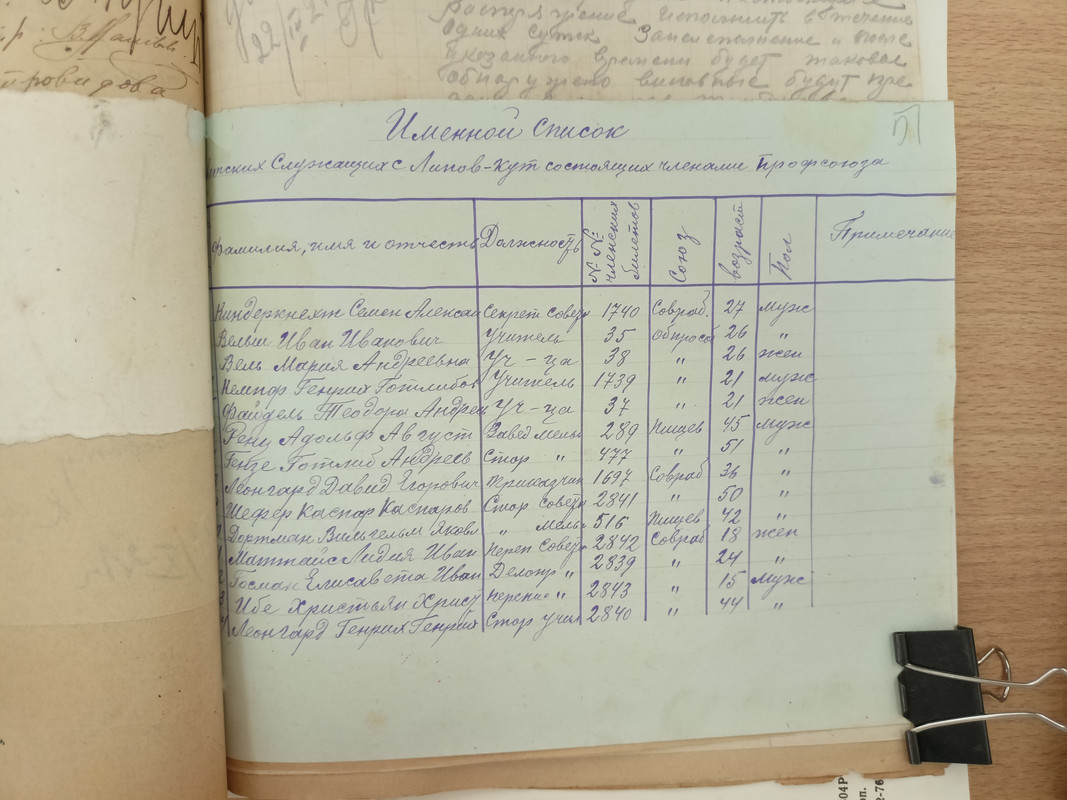 22/IV 21
исполнить в течение
одних суток За неисполнение и после
указанного времени будет таковое
обнаружено виновные будут пре
ровидова
Именной список
тских Служащих с Липов-Кут состоящих членами Профсоюза
Фамилия, имя и отчеств Должность №№ членских билетов Союз возраст Пол Примечание
Киндеркнехт Семен Алексан Секрет совета 1740 Совраб. 27 Муж
Вельш Иван Иванович Учитель 35 26 „
Вель Мария Андреевна Уч-ца 38 „ 26 жен
Кемпф Генрих Готлибов Учитель 1739 „ 21 муж
Файдель Теодора Андрее Уч-ца 37 „ 21 жен
Ренц Адольф Август Завед мель 289 Пищев 45 Муж
Гензе Готлиб Андреев Стор „ 477 „ 51 „
Леонгард Давид Егорович Приказчик 1697 Совраб 36 „
Шефер Каспар Каспаров Стор совета 2841 „ 50 „
Дортман Вильгельм Яковл „ мель 516 Пищев 42 „
Маттайс Лидия Иван Переп Совета 2842 Совраб 18 жен
Госман Елисавета Иван Делопр „ 2839 „ 24 „
Ибе Христьян Христ „ 2843 „ 15 Муж
Леонгард Генрих Генрих Стор учил 2840 „ 44 „
04Р
оп.
2-76